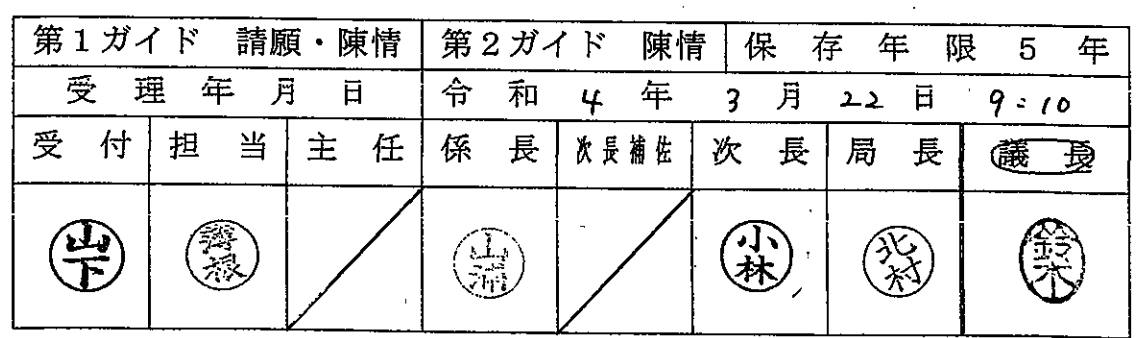 第1ガイド 請願・陳情 第2ガイド 陳情 保存年限 5年
受理年月日 令和 4年 3月 22日 9:10
受付 担当 主任 係長 次長補佐 次長 局長 議長
山下 山浦 小林 北村 鈴木